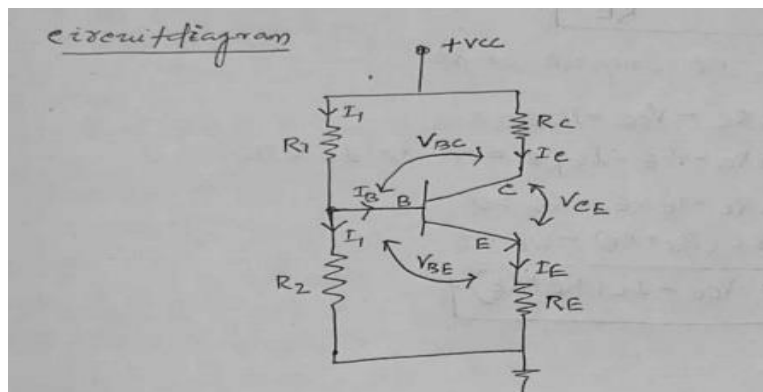 circuitdiagram
+VCC
I1
R1
RC
VBC
IC
IB
B
C
VCE
I1
E
VBE
IE
R2
RE